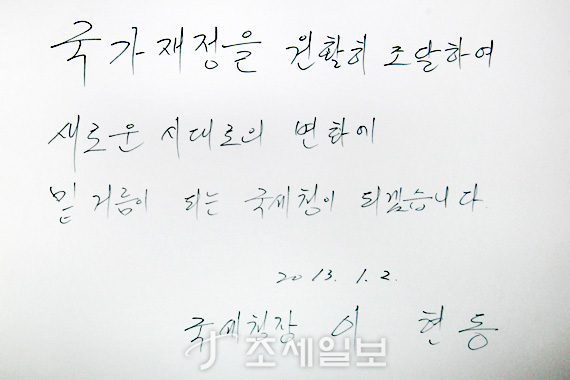 국가재정을 원활히 조달하여
새로운 시대로의 변화에
밑거름이 되는 국세청이 되겠습니다.
2013. 1. 2.
국세청장 이 현 동
조세일보